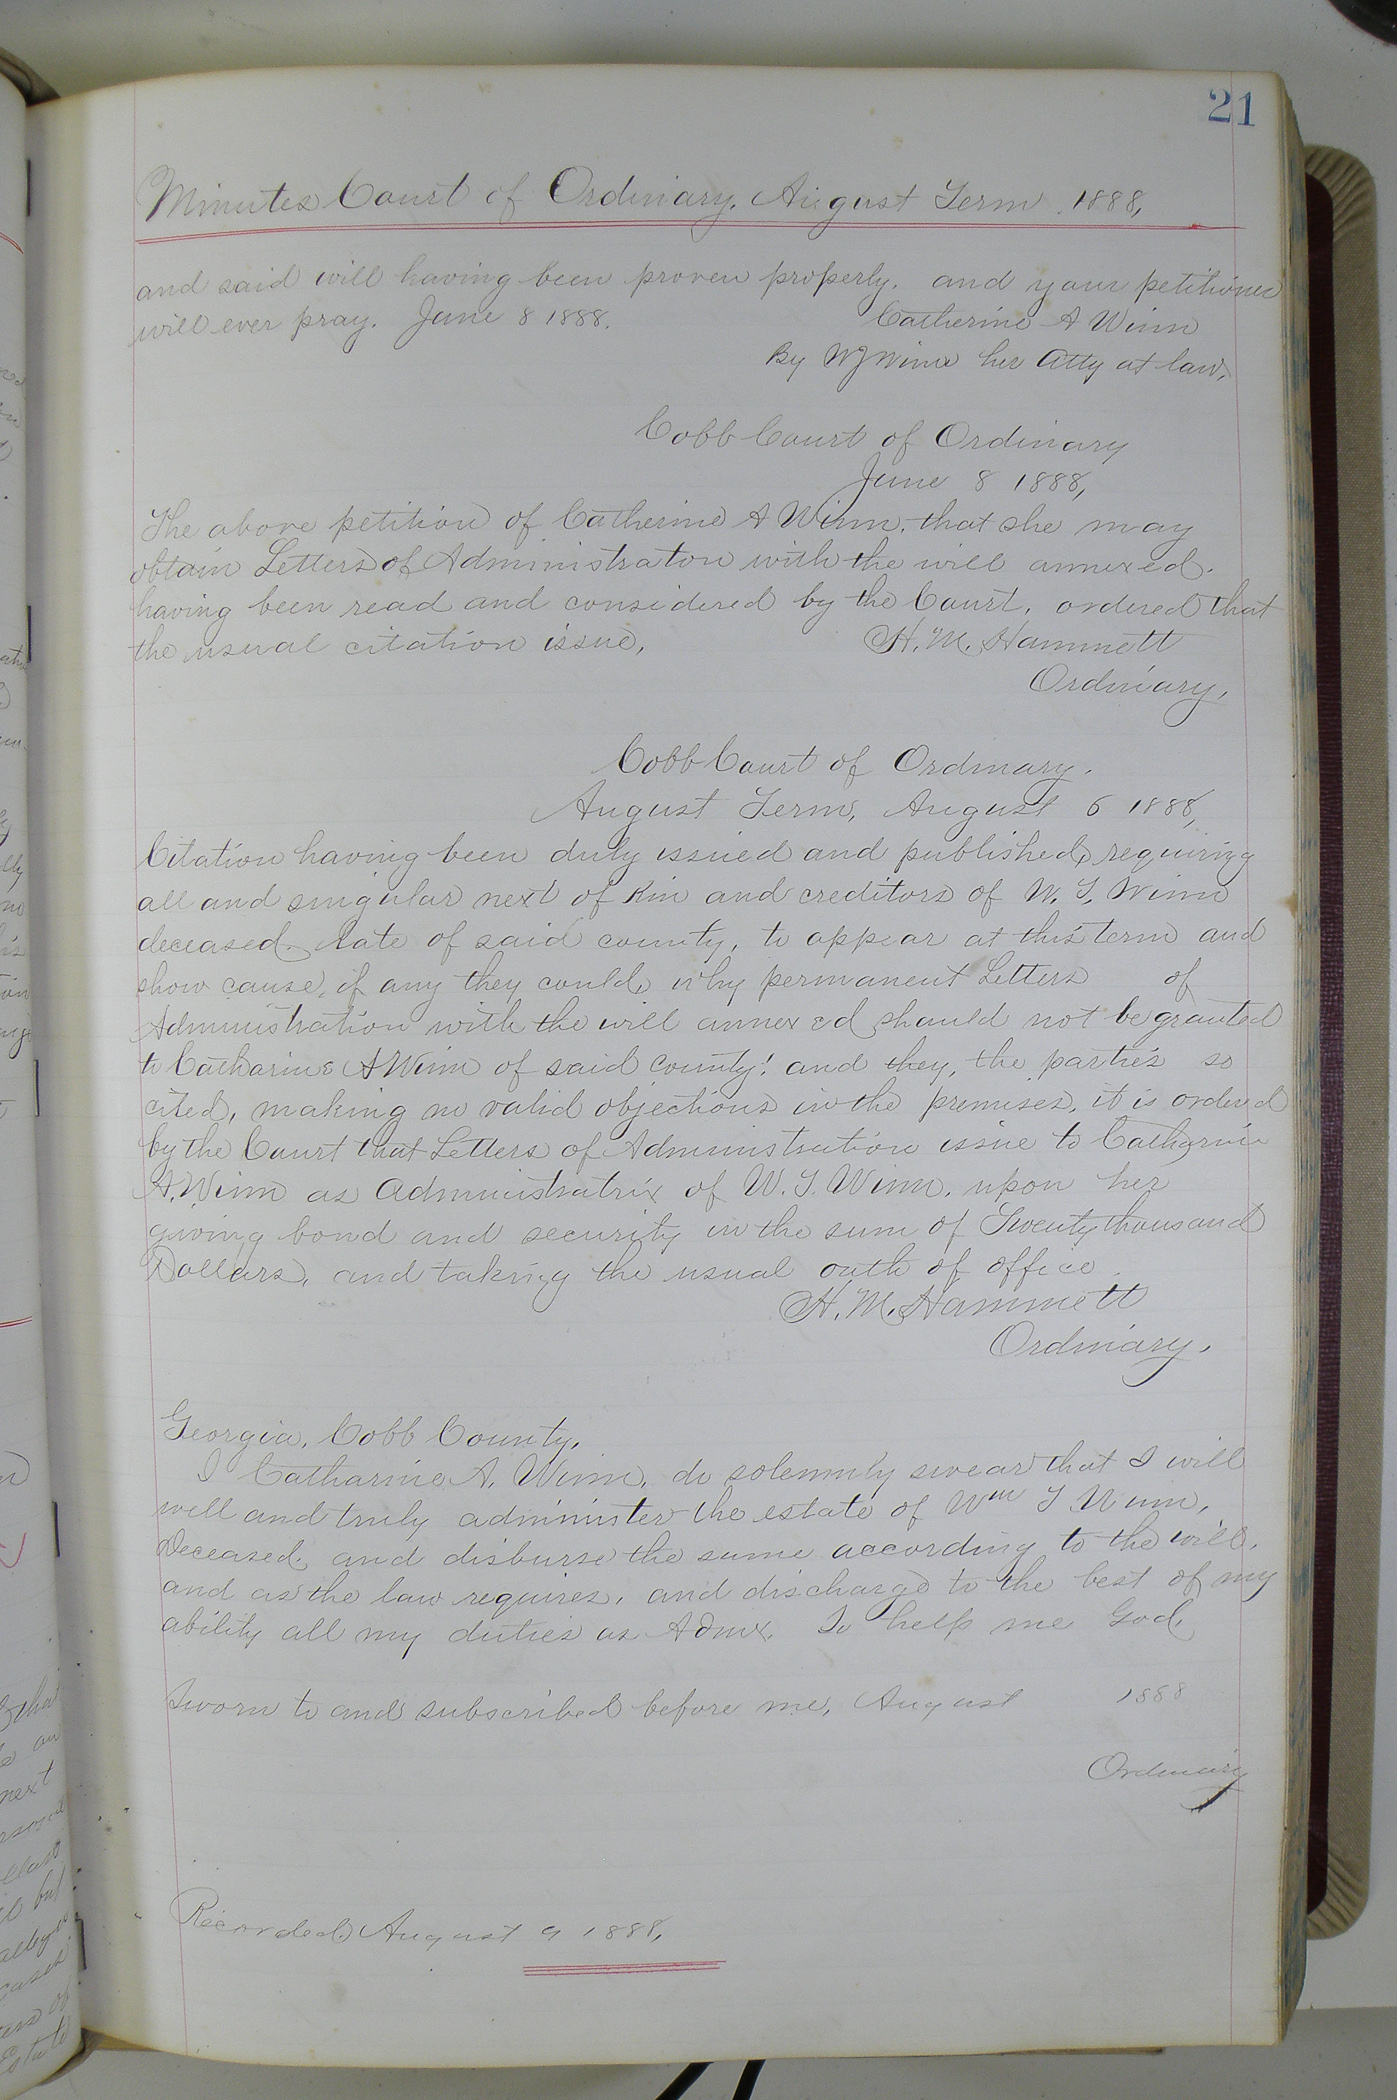 21
Minutes Court of Ordinary, August Term 1888,
and said will having been proven properly. and your petitioner
will ever pray. June 8 1888.
Catherine A Winn
By WJ Winn her Atty at law.
Cobb Court of Ordinary
June 8 1888,
The above petition of Catherine A Winn, that she may
obtain Letters of Administraton with the will annexed.
having been read and considered by the Court, ordered that
the usual citation issue,
H. M. Hammett
Ordinary,
Cobb Court of Ordinary.
August Term, August 6 1888,
Citation having been duly issued and published, requiring
all and singular next of kin and creditors of W. T. Winn
deceased. late of said county, to appear at this term and
show cause, if any they could, why permanent Letters of
Administration with the will annexed should not be granted
to Catharine A Winn of said county; and they, the parties so
cited, making no valid objections in the premises, it is ordered
by the Court that Letters of Administration issue to Catharine
A. Winn as Administratrix of W. T. Winn. upon her
giving bond and security in the sum of Twenty thousand
Dollars, and taking the usual oath of office.
H. M. Hammett
Ordinary.
Georgia, Cobb County.
I Catharine A. Winn, do solemnly swear that I will
well and truly administer the estate of Wm T Winn,
Deceased. and disburse the same according to the will.
and as the law requires, and discharge to the best of my
ability all my duties as Admx. So help me God.
Sworn to and subscribed before me, August 1888
Ordinary
Recorded August 9 1888,